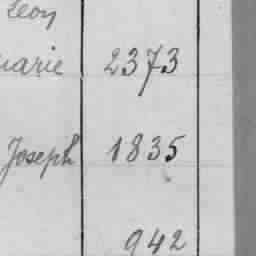 Leon
marie 2373
Joseph 1835
942